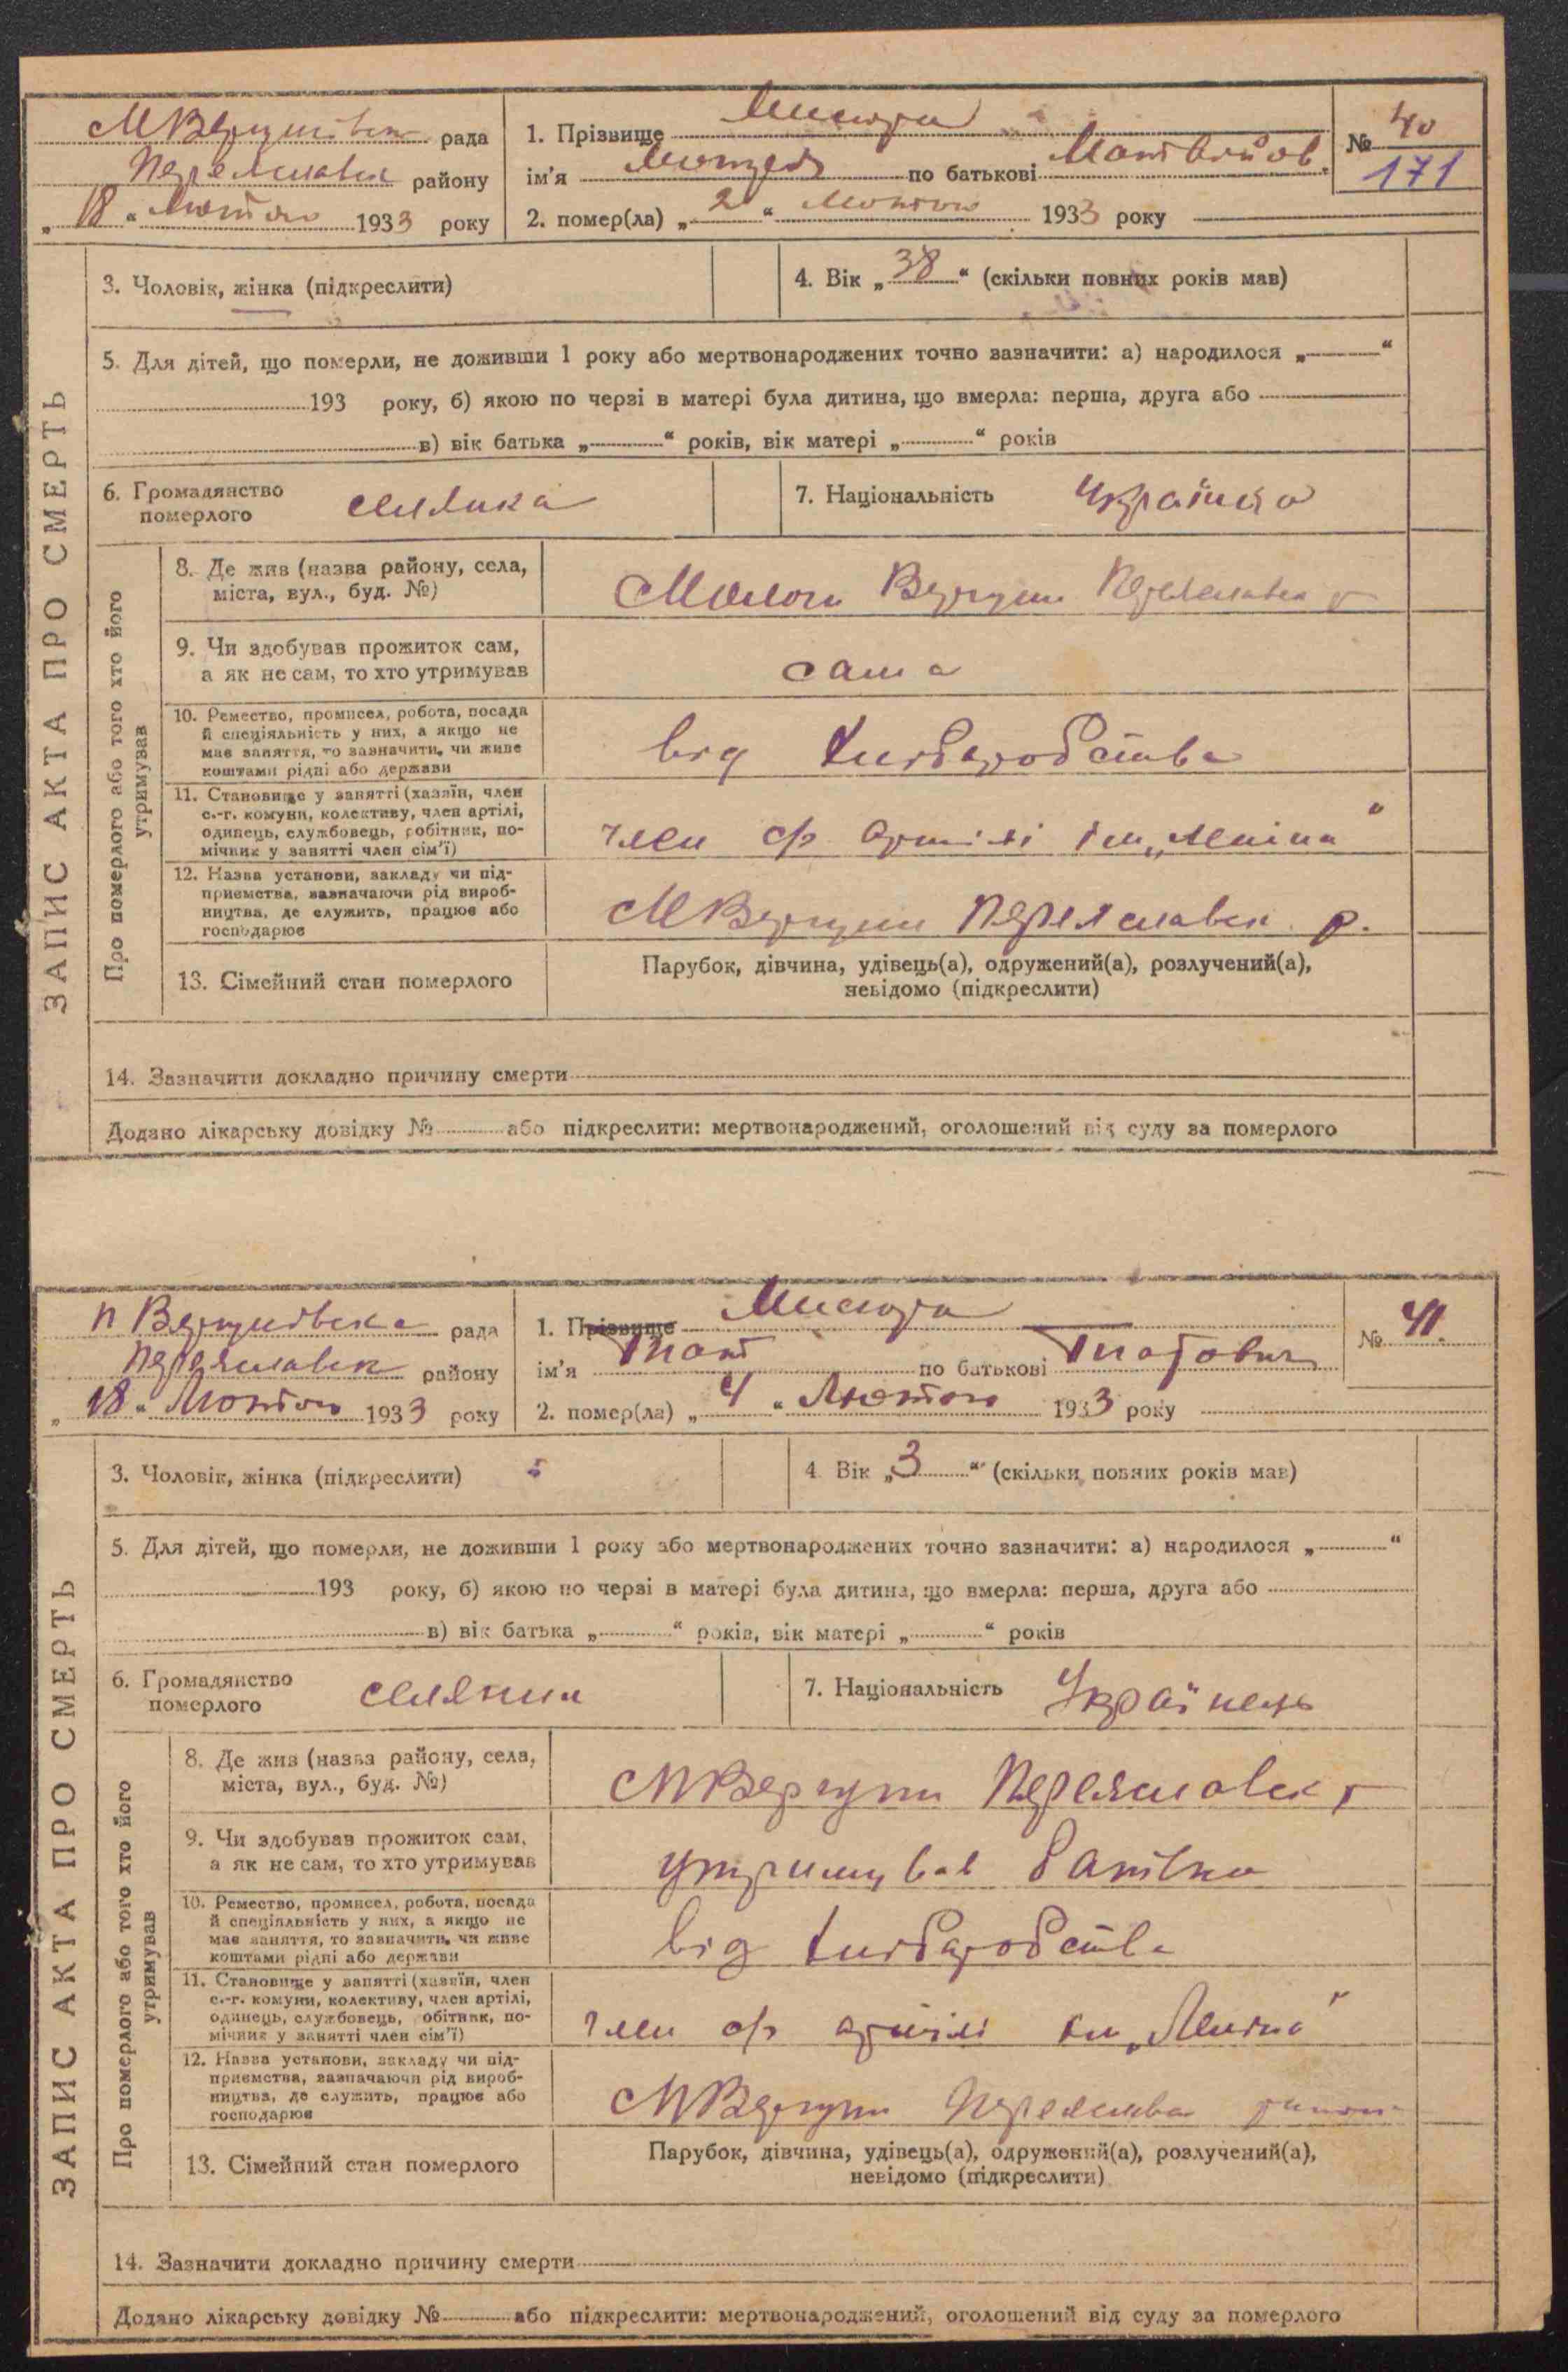 МВергунівськ рада
Переяславськ району
„ 18 “ Лютого 1933 року
1. Прізвище Мисюра
ім'я по батькові Матвійов.
2. помер(ла) „ 2 “ Лютого 1933 року
№ 40
171
ЗАПИС АКТА ПРО СМЕРТЬ
3. Чоловік, жінка (підкреслити)
4. Вік „ 38 “ (скільки повних років мав)
5. Для дітей, що померли, не доживши 1 року або мертвонароджених точно зазначити: а) народилося „ “
193 року, б) якою по черзі в матері була дитина, що вмерла: перша, друга або
в) вік батька „ “ років, вік матері „ “ років
6. Громадянство
померлого
селянка
7. Національність
Українка
Про померлого або того хто його
утримував
8. Де жив (назва району, села,
міста, вул., буд. №)
Малі Вергуни Переяславськ р
9. Чи здобував прожиток сам,
а як не сам, то хто утримував
сама
10. Ремество, промисел, робота, посада
й спеціяльність у них, а якщо не
має заняття, то зазначити, чи живе
коштами рідні або держави
від хліборобства
11. Становище у занятті (хазяїн, член
с.-г. комуни, колективу, член артілі,
одинець, службовець, робітник, по-
мічник у занятті член сім'ї)
член с/г артілі ім. „Леніна“
12. Назва установи, закладу чи під-
приємства, зазначаючи рід вироб-
ництва, де служить, працює або
господарює
МВергуни Переяславськ р.
13. Сімейний стан померлого
Парубок, дівчина, удівець(а), одружений(а), розлучений(а),
невідомо (підкреслити)
14. Зазначити докладно причину смерти
Додано лікарську довідку № або підкреслити: мертвонароджений, оголошений від суду за померлого
Вергунівська рада
Переяславськ району
„ 18 “ Лютого 1933 року
1. Прізвище Мисюра
ім'я по батькові
2. помер(ла) „ 4 “ Лютого 1933 року
№ 41.
ЗАПИС АКТА ПРО СМЕРТЬ
3. Чоловік, жінка (підкреслити)
4. Вік „ 3 “ (скільки повних років мав)
5. Для дітей, що померли, не доживши 1 року або мертвонароджених точно зазначити: а) народилося „ “
193 року, б) якою по черзі в матері була дитина, що вмерла: перша, друга або
в) вік батька „ “ років, вік матері „ “ років
6. Громадянство
померлого
селянин
7. Національність
Українець
Про померлого або того хто його
утримував
8. Де жив (назва району, села,
міста, вул., буд. №)
МВергуни Переяславськ р
9. Чи здобував прожиток сам,
а як не сам, то хто утримував
утримував батько
10. Ремество, промисел, робота, посада
й спеціяльність у них, а якщо не
має заняття, то зазначити, чи живе
коштами рідні або держави
від хліборобства
11. Становище у занятті (хазяїн, член
с.-г. комуни, колективу, член артілі,
одинець, службовець, робітник, по-
мічник у занятті член сім'ї)
член с/г артілі ім. „Леніна“
12. Назва установи, закладу чи під-
приємства, зазначаючи рід вироб-
ництва, де служить, працює або
господарює
МВергуни Переяславськ району
13. Сімейний стан померлого
Парубок, дівчина, удівець(а), одружений(а), розлучений(а),
невідомо (підкреслити)
14. Зазначити докладно причину смерти
Додано лікарську довідку № або підкреслити: мертвонароджений, оголошений від суду за померлого